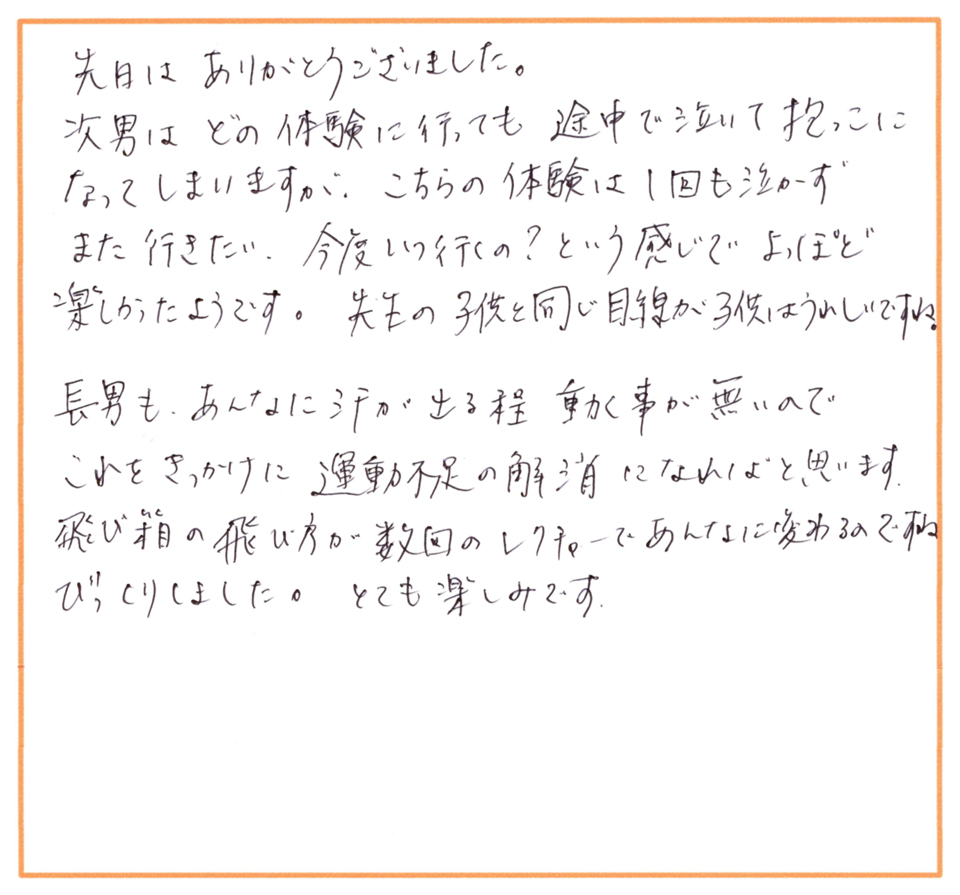 先日は ありがとうございました。
次男は どの 体験に行っても 途中で泣いて 抱っこに
なってしまいますが、こちらの 体験は1回も泣かず
また 行きたい、今度いつ行くの?という 感じで よっぽど
楽しかったようです。 先生の 子供と同じ目線が子供はうれしいですね。
長男も、あんなに汗が 出る程 動く事が 無いので
これを きっかけに 運動不足の解消 になればと思います。
飛び箱の 飛び方が 数回のレクチャーであんなに変わるのですね
びっくりしました。 とても 楽しみです.